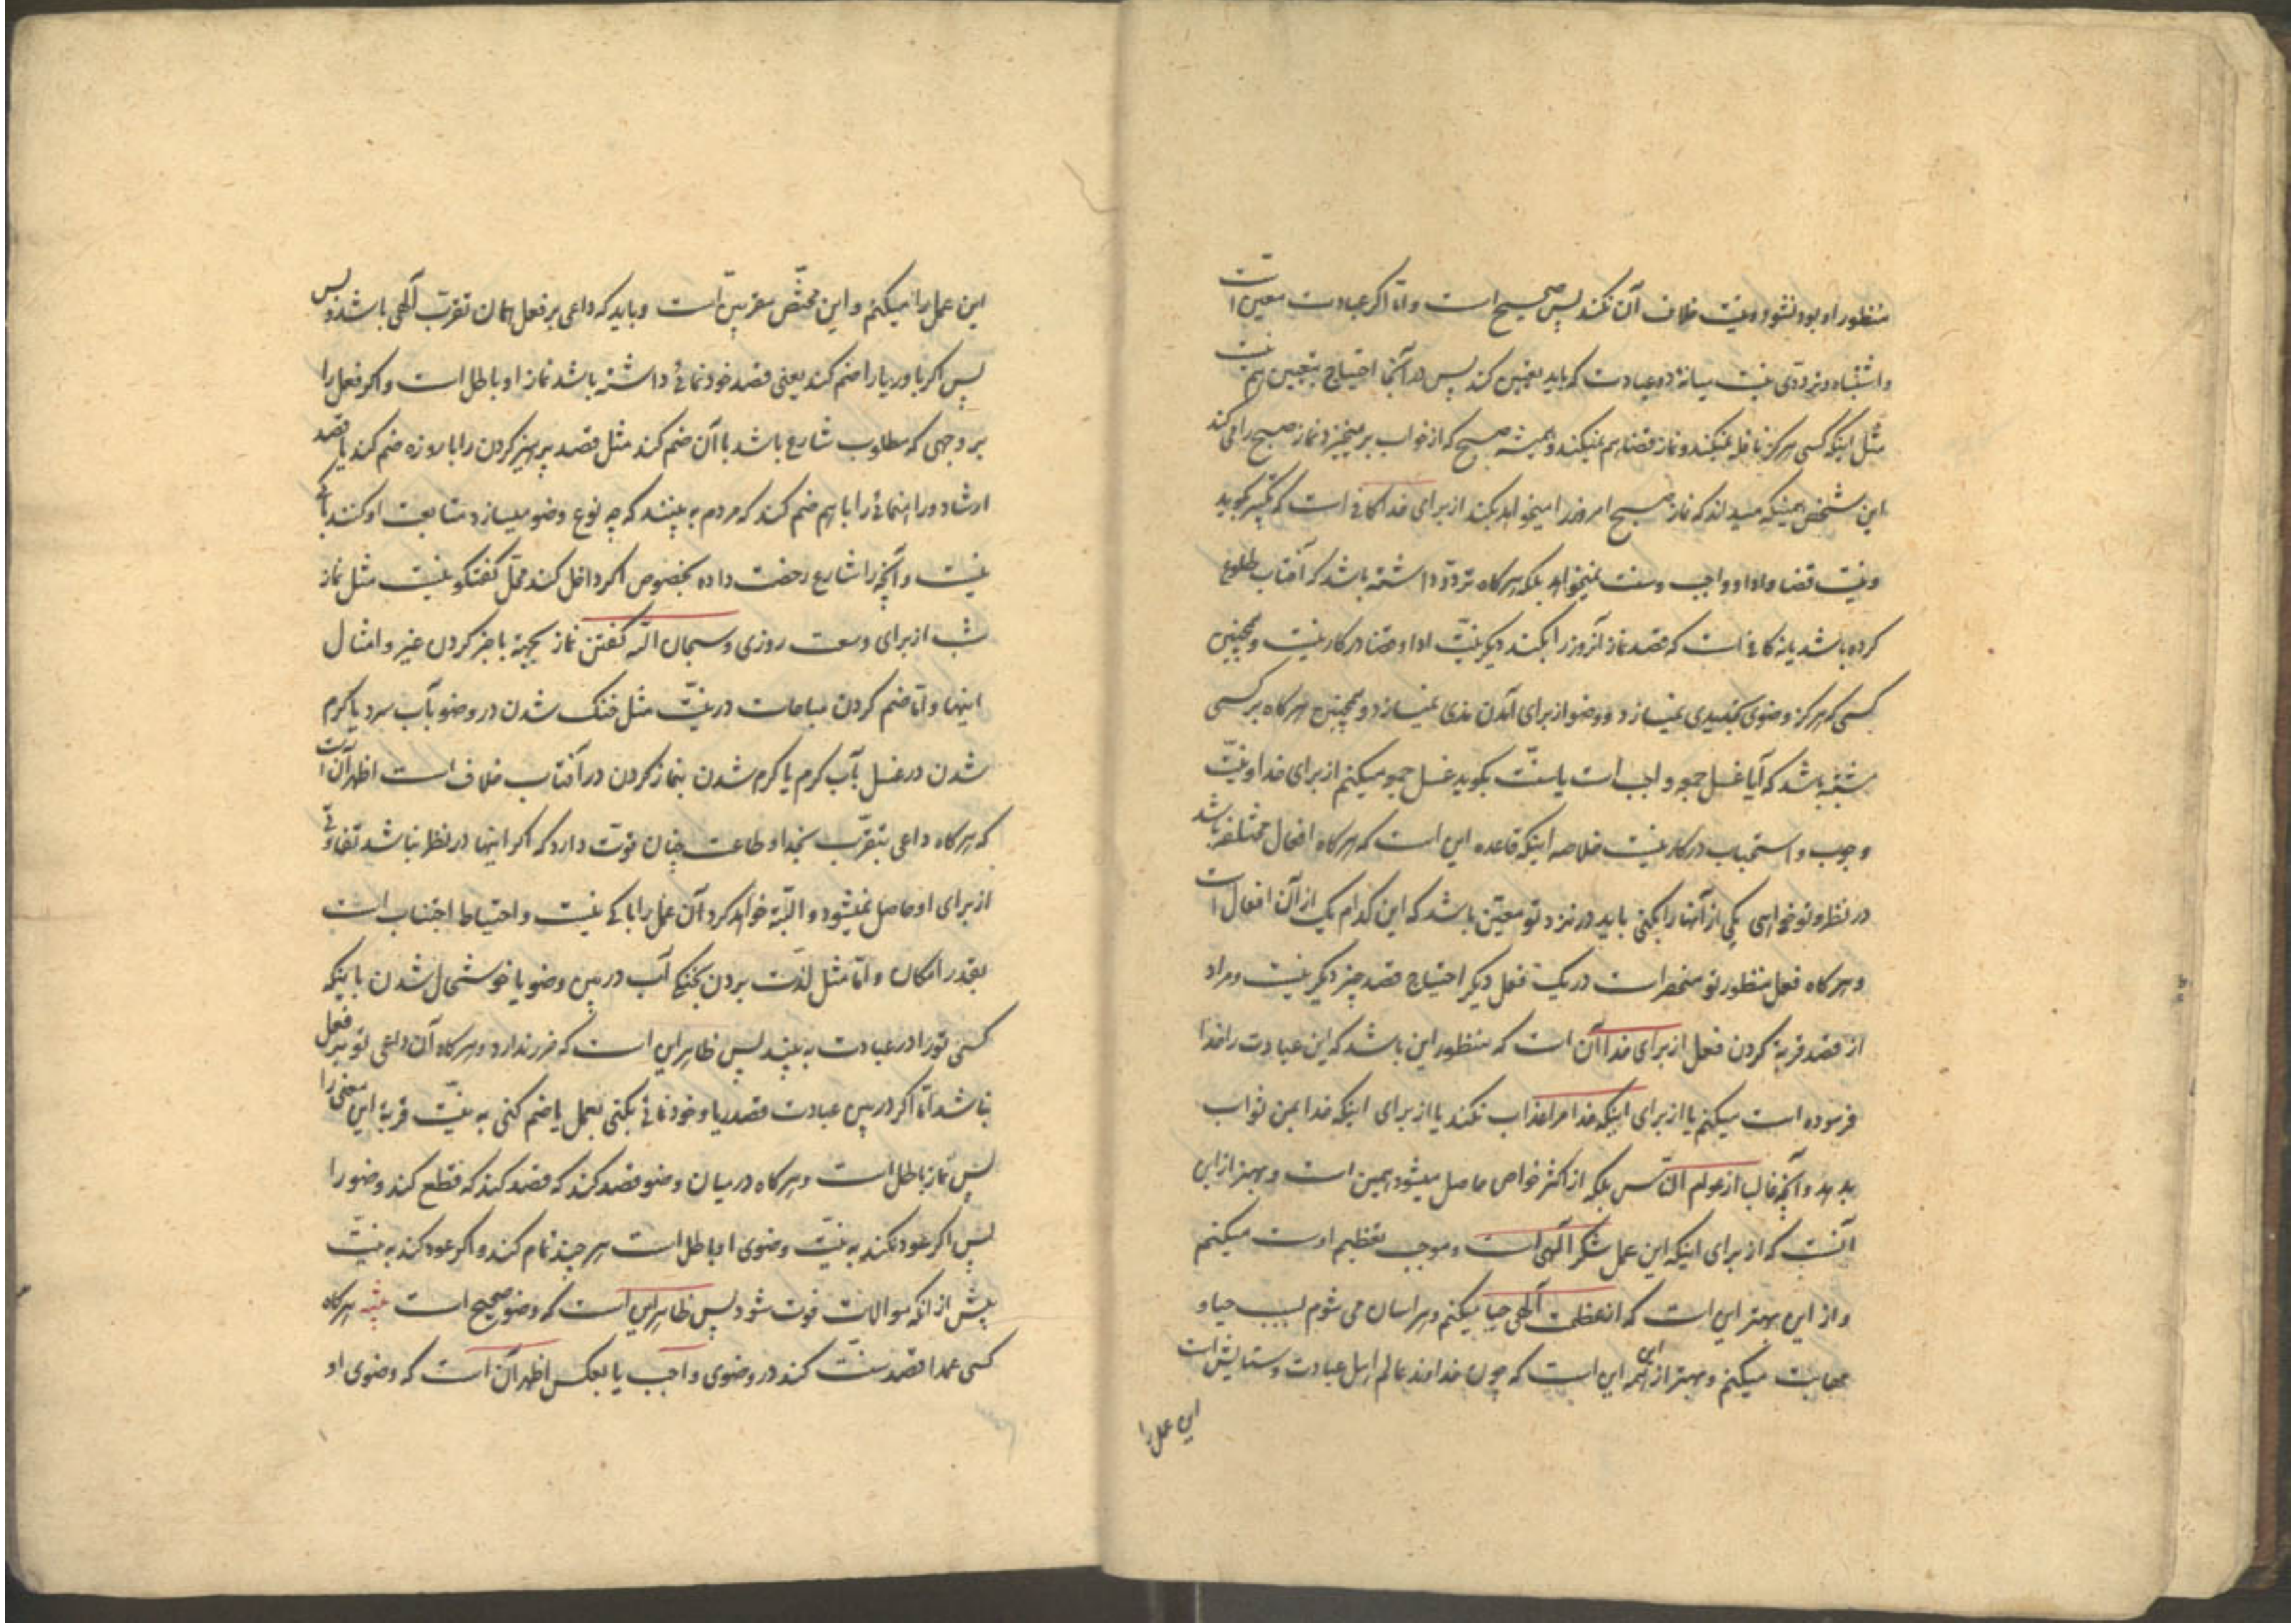 منظور او بود نشود و نیت خلاف آن نکند پس صحیح است و اما اکر عبادت معین است
و اشتباه و ترددی نیست میانهٔ دو عبادت که باید تعیین کند پس در آنجا احتیاج بتعیین هم نیست
مثل اینکه کسی هرکز نافله نمیکند و نماز قضا هم نمیکند و همیشه صبح که از خواب بر میخیزد نماز صبح را می کند
این شخص همینکه میداند که نماز صبح امروز را میخواهد بکند از برای خدا کافی است که تکبیر کوید
و نیت قضا و ادا و واجب و سنت نمیخواهد بلکه هرکاه تردد داشته باشد که آفتاب طلوع
کرده باشد یا نه کافی است که قصد نماز آنروز را بکند دیکر نیت ادا و قضا در کار نیست و همچنین
کسی که هرکز وضوی تجدیدی نمیسازد و وضو از برای آمدن مذی نمیسازد و همچنین هرکاه بر کسی
مشتبه باشد که آیا غسل جمعه واجب است یا سنت بکوید غسل جمعه میکنم از برای خدا و نیت
وجوب و استحباب در کار نیست خلاصه اینکه قاعده این است که هرکاه افعال مختلفه باشد
در نظر و تو خواهی یکی از آنها را بکنی باید در نزد تو معین باشد که این کدام یک از آن افعال است
و هرکاه فعل منظور تو منحصر است در یک فعل دیکر احتیاج قصد چیز دیکر نیست و مراد
از قصد قربة کردن فعل از برای خدا آن است که منظور این باشد که این عبادت را خدا
فرموده است میکنم یا از برای اینکه خدا مرا عذاب نکند یا از برای اینکه خدا بمن ثواب
بدهد و آنچه غالبا از عوام الناس بلکه از اکثر خواص حاصل میشود همین است و بهتر از این
آنست که از برای اینکه این عمل شکر آلهی است و موجب تعظیم اوست میکنم
و از این بهتر این است که از عظمت آلهی حیا میکنم و هراسان می شوم بسبب حیا و
مهابت میکنم و بهتر از این همه این است که چون خداوند عالم اهل عبادت و ستایش است
این عمل را
این عمل را میکنم و این مختص مقربین است و باید که داعی بر فعل همان تقرب آلهی باشد و بس
پس اکر با او ریا را ضم کند یعنی قصد خودنمائی داشته باشد نماز او باطل است و اکر فعل را
بر وجهی که مطلوب شارع باشد با آن ضم کند مثل قصد پرهیز کردن را با روزه ضم کند یا قصد
ارشاد و راهنمائی را با هم ضم کند که مردم به بینند که چه نوع وضو میسازد متابعت او کنند باکی
نیست و آنچه را شارع رخصت داده بخصوص اکر داخل کند محل کفتکو نیست مثل نماز
شب از برای وسعت روزی و سبحان الله کفتن نماز بجهة با خبر کردن غیر و امثال
اینها و اما ضم کردن مباحات در نیت مثل خنک شدن در وضو بآب سرد یا کرم
شدن در غسل بآب کرم یا کرم شدن بنماز کردن در آفتاب خلاف است اظهر آن است
که هرکاه داعی بتقرب بخدا و طاعت چنان قوت دارد که اکر اینها در نظر نباشد تفاوتی
از برای او حاصل نمیشود و البته خواهد کرد آن عمل را باکی نیست و احتیاط اجتناب است
بقدر امکان و اما مثل لذت بردن بخنکی آب در بین وضو یا خوشحال شدن باینکه
کسی تو را در عبادت به بیند پس ظاهر این است که ضرر ندارد و هرکاه آن داعی تو بر فعل
نباشد اما اکر در بین عبادت قصد ریا و خودنمائی بکنی بعمل یا ضم کنی به نیت قربة این معنی را
پس نماز باطل است و هرکاه در میان وضو قصد کند که قصد کند که قطع کند وضو را
پس اکر عود نکند به نیت وضوی او باطل است هر چند تمام کند و اکر عود کند به نیت
پیش از انکه موالات فوت شود پس ظاهر این است که وضو صحیح است هرکاه
کسی عمدا قصد سنت کند در وضوی واجب یا بعکس اظهر آن است که وضوی او